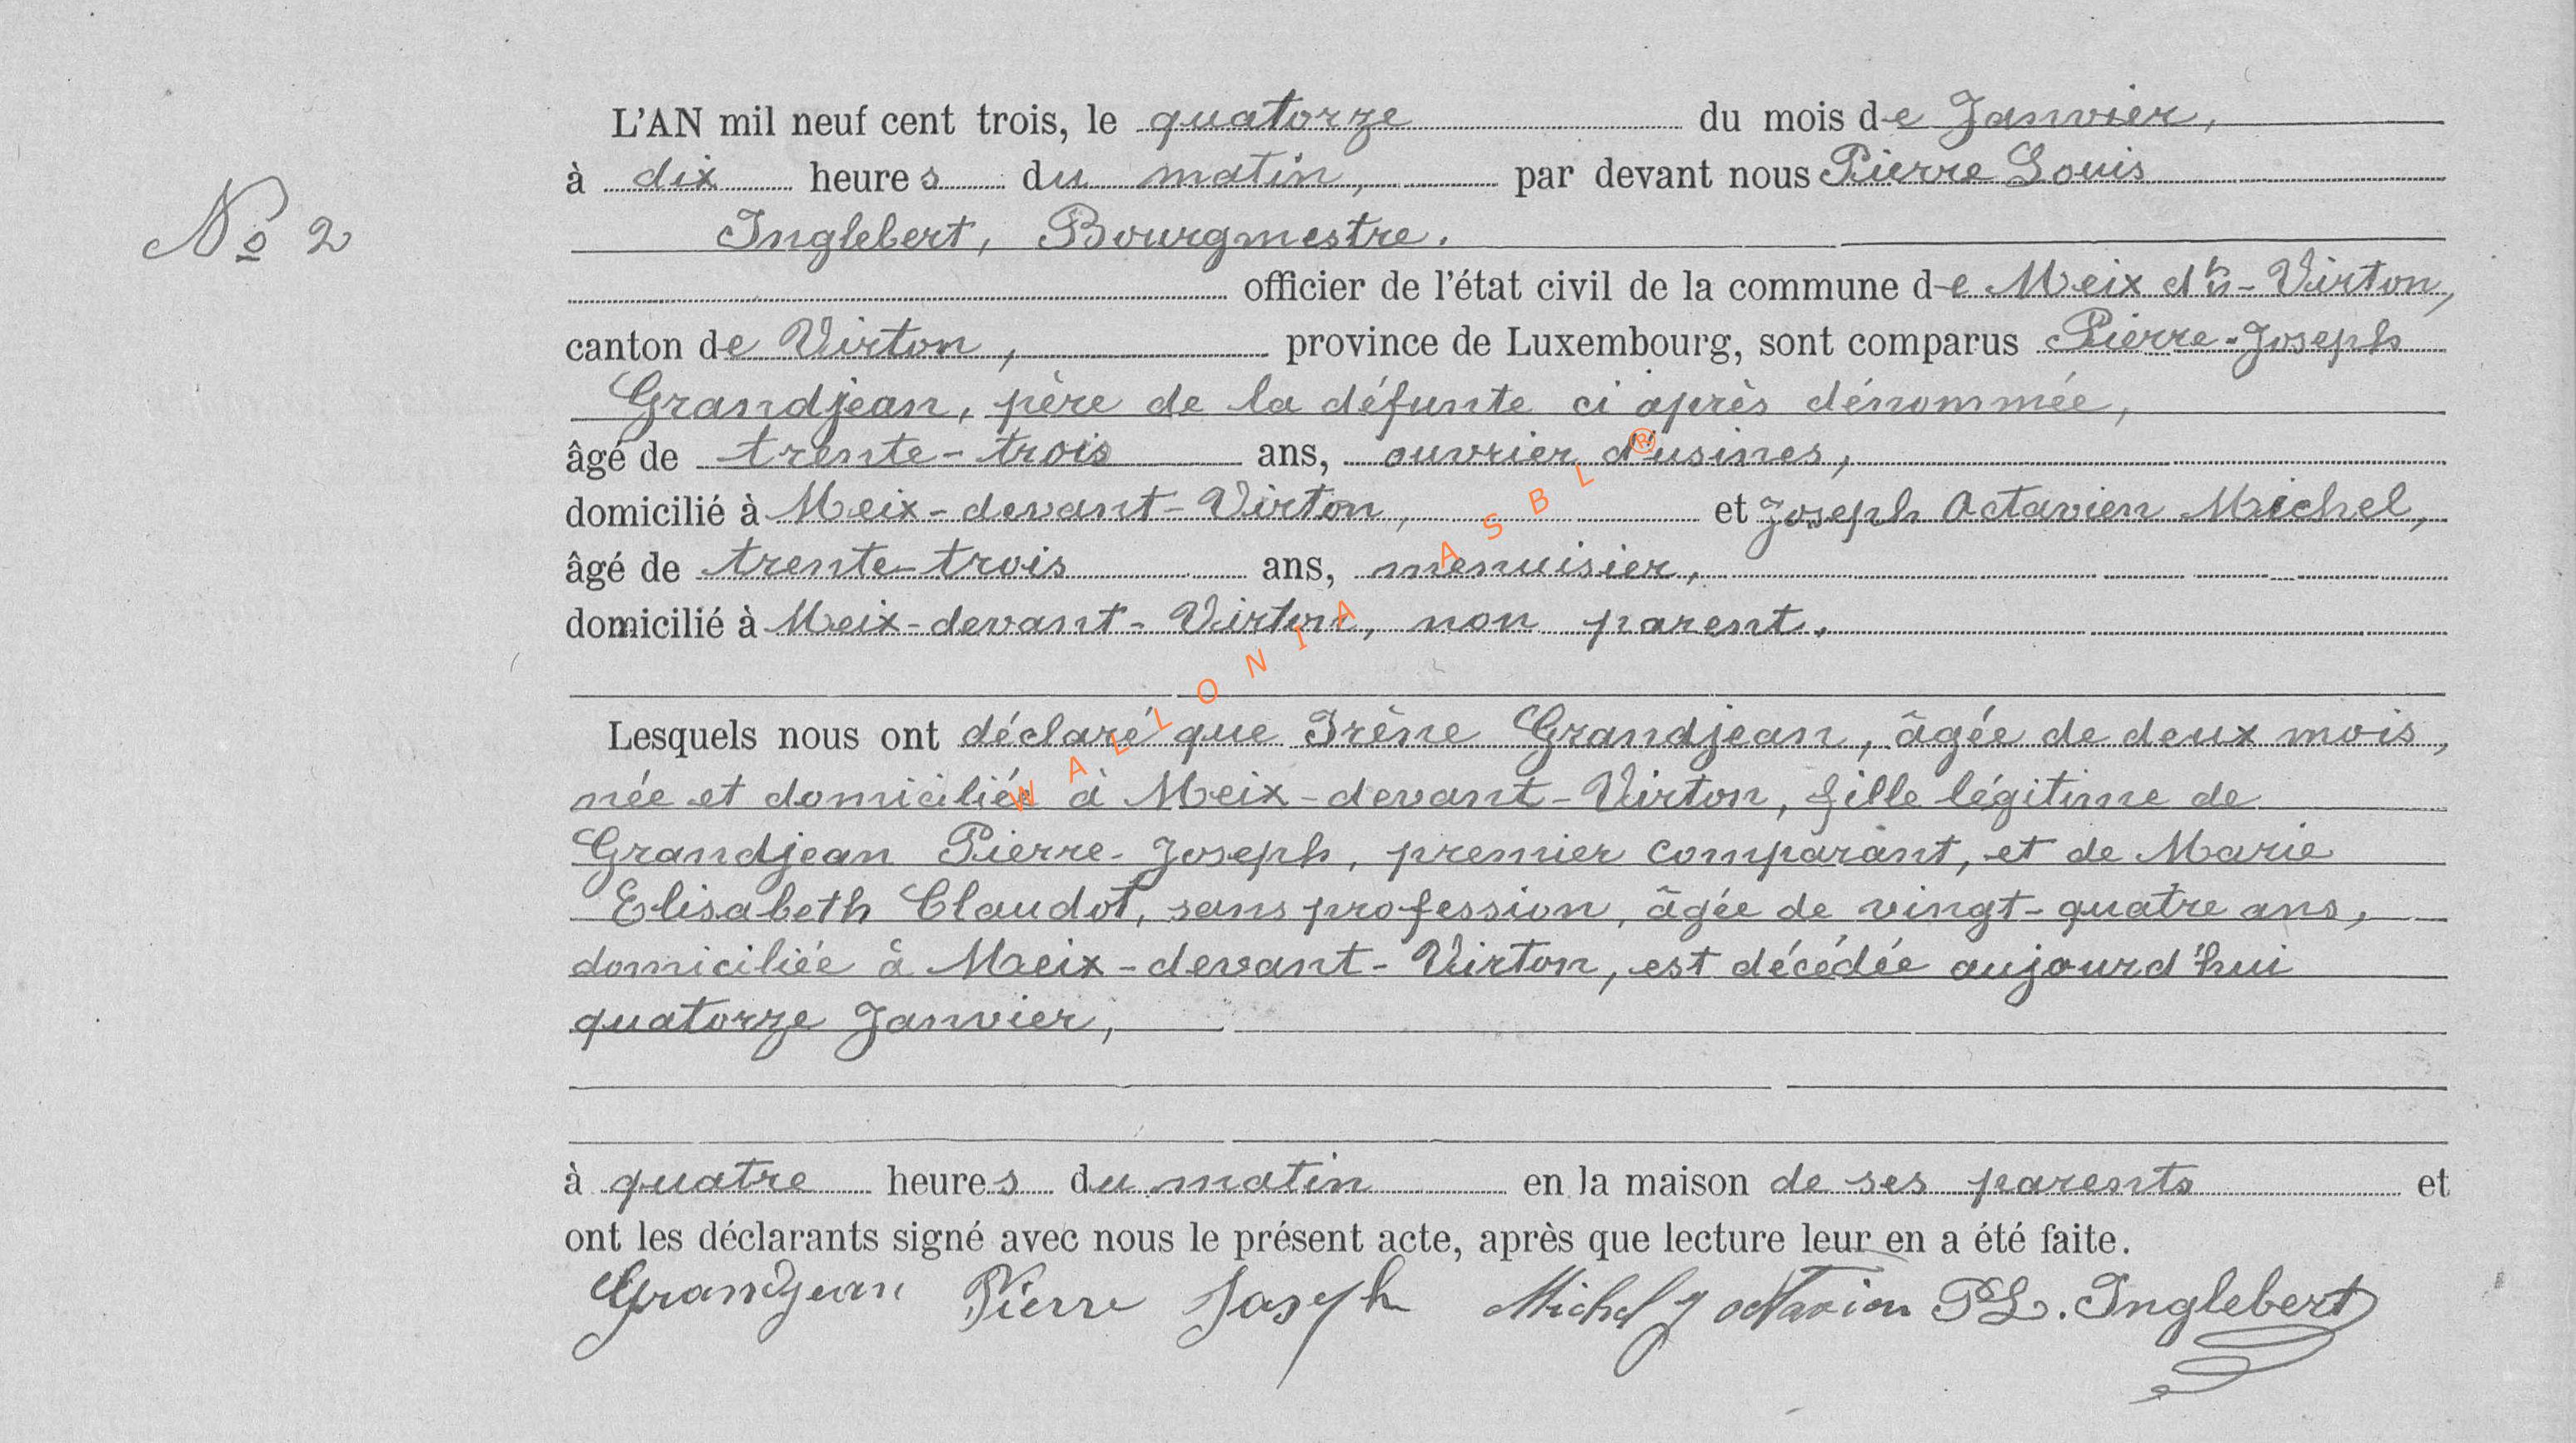 L'AN mil neuf cent trois, le quatorze du mois de Janvier,
à dix heures du matin, par devant nous Pierre Louis
Nº 2
Inglebert, Bourgmestre.
officier de l'état civil de la commune de Meix dt-Virton,
canton de Virton, province de Luxembourg, sont comparus Pierre-Joseph
Grandjean, père de la défunte ci après dénommée,
âgé de trente-trois ans, ouvrier d'usines,
domicilié à Meix-devant-Virton, et Joseph Octavien Michel,
âgé de trente-trois ans, menuisier,
domicilié à Meix-devant-Virton, non parent.
Lesquels nous ont déclaré que Irène Grandjean, âgée de deux mois,
née et domiciliée à Meix-devant-Virton, fille légitime de
Grandjean Pierre-Joseph, premier comparant, et de Marie
Elisabeth Claudot, sans profession, âgée de vingt-quatre ans,
domiciliée à Meix-devant-Virton, est décédée aujourd'hui
quatorze Janvier,
à quatre heures du matin en la maison de ses parents et
ont les déclarants signé avec nous le présent acte, après que lecture leur en a été faite.
Grandjean Pierre Joseph Michel J octavien P L. Inglebert
WALLONIA ASBL ®